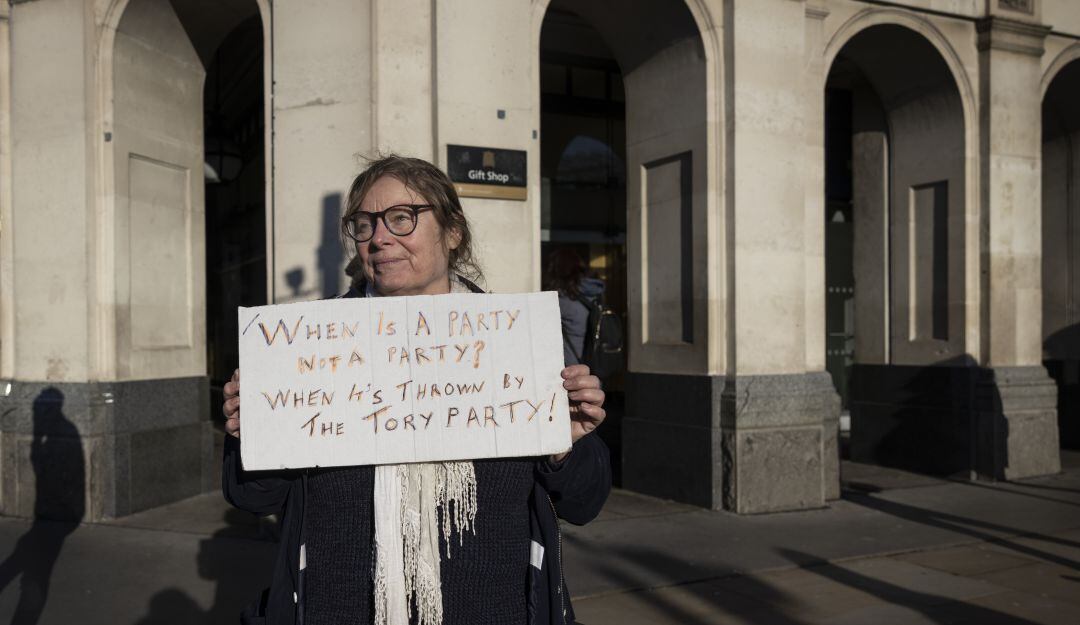 Gift Shop
WHEN IS A PARTY
NOT A PARTY?
WHEN IT'S THROWN BY
THE TORY PARTY!